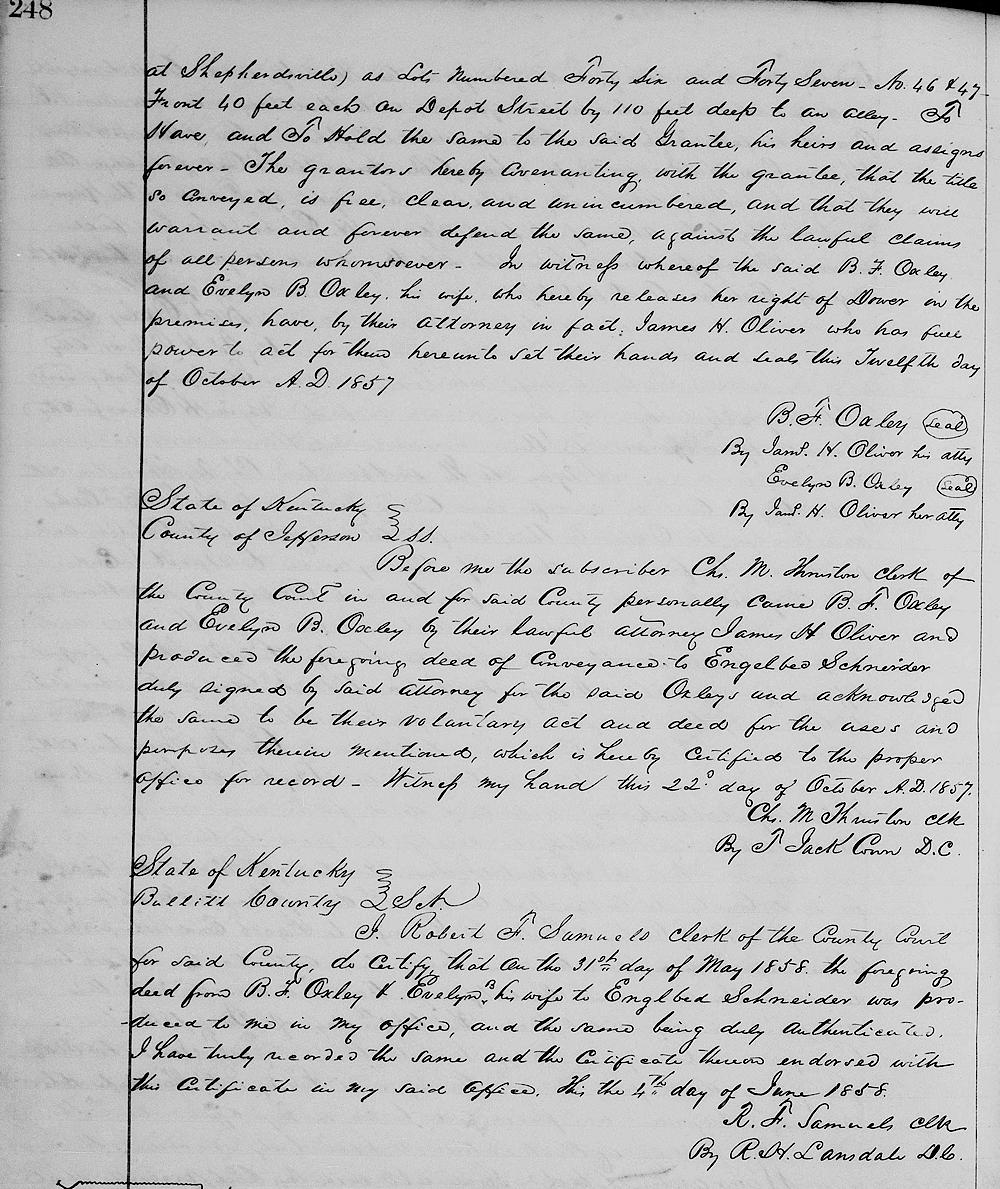 248
at Shepherdsville) as Lots numbered Forty Six and Forty Seven - No. 46 & 47 -
Front 40 feet each on Depot Street by 110 feet deep to an alley - To
Have, and To Hold the same to the said Grantee, his heirs and assigns
forever - The grantors hereby Covenanting, with the grantee, that the title
so conveyed, is free, clear, and unincumbered, and that they will
warrant and forever defend the same, against the lawful claims
of all persons whomsoever - In witness whereof the said B. F. Oxley,
and Evelyn B. Oxley, his wife, who hereby releases her right of Dower in the
premises, have, by their attorney in fact, James H. Oliver who has full
power to act for them hereunto set their hands and seals this Twelfth day
of October A.D. 1857
B. F. Oxley (seal)
By Jams. H. Oliver his atty
Evelyn B. Oxley (seal)
By Jams. H. Oliver her atty
State of Kentucky
County of Jefferson } SS.
Before me the subscriber Chs. M. Thruston clerk of
the County Court in and for said County personally came B. F. Oxley
and Evelyn B. Oxley by their lawful attorney James H Oliver and
produced the foregoing deed of Conveyance to Engelbed Schneider
duly signed by said attorney for the said Oxleys and acknowledged
the same to be their voluntary act and deed for the uses and
purposes therein mentioned, which is hereby certified to the proper
office for record - Witness my hand this 22d day of October A.D. 1857.
Chs. M Thruston clk
By T Jack Conn D.C.
State of Kentucky
Bullitt County } Sct.
I, Robert F. Samuels clerk of the County Court
for said County, do certify, that on the 31st day of May 1858. the foregoing
deed from B. F. Oxley & Evelyn B. his wife to Englbed Schneider was pro-
-duced to me in my office, and the same being duly authenticated,
I have truly recorded the same and the certificate thereon endorsed with
this certificate in my said office. This the 4th day of June 1858.
R. F. Samuels clk
By R. H. Lansdale D.C.